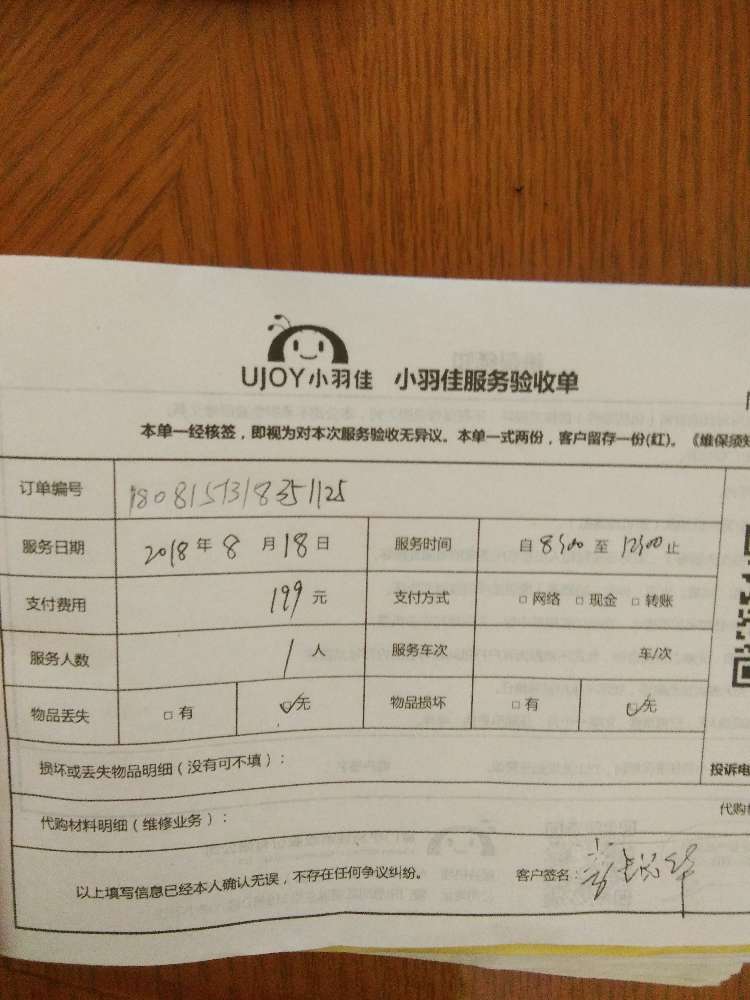 UJOY小羽佳 小羽佳服务验收单
本单一经核签，即视为对本次服务验收无异议。本单一式两份，客户留存一份(红)。《维保须知
订单编号
服务日期 2018 年 8 月 18 日 服务时间 自 8:00 至 12:00 止
支付费用 199 元 支付方式 □ 网络 □ 现金 □ 转账
服务人数 1 人 服务车次 车/次
物品丢失 □ 有 ☑ 无 物品损坏 □ 有 ☑ 无
损坏或丢失物品明细（没有可不填）：
投诉电
代购材料明细（维修业务）：
代购
以上填写信息已经本人确认无误，不存在任何争议纠纷。 客户签名：